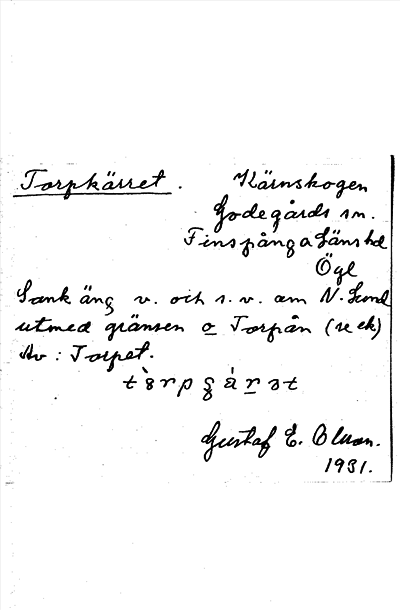 Torpkärret. Kärnskogen
Godegårds sn.
Finspånga Läns hd
Ögl
Sank äng v. och s. v. om N. Lund
utmed gränsen o Torpån (se ek)
Av: Torpet.
Gustaf E. Olsson.
1931.